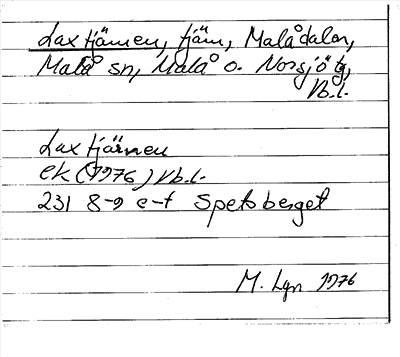 Laxtjärnen, tjärn, Malådalen,
Malå sn, Malå o. Norsjö tg,
Vb.l.
Laxtjärnen
ek (1976) Vb.l.
231 8-9 e-f Spetsberget
M. Lgn 1976